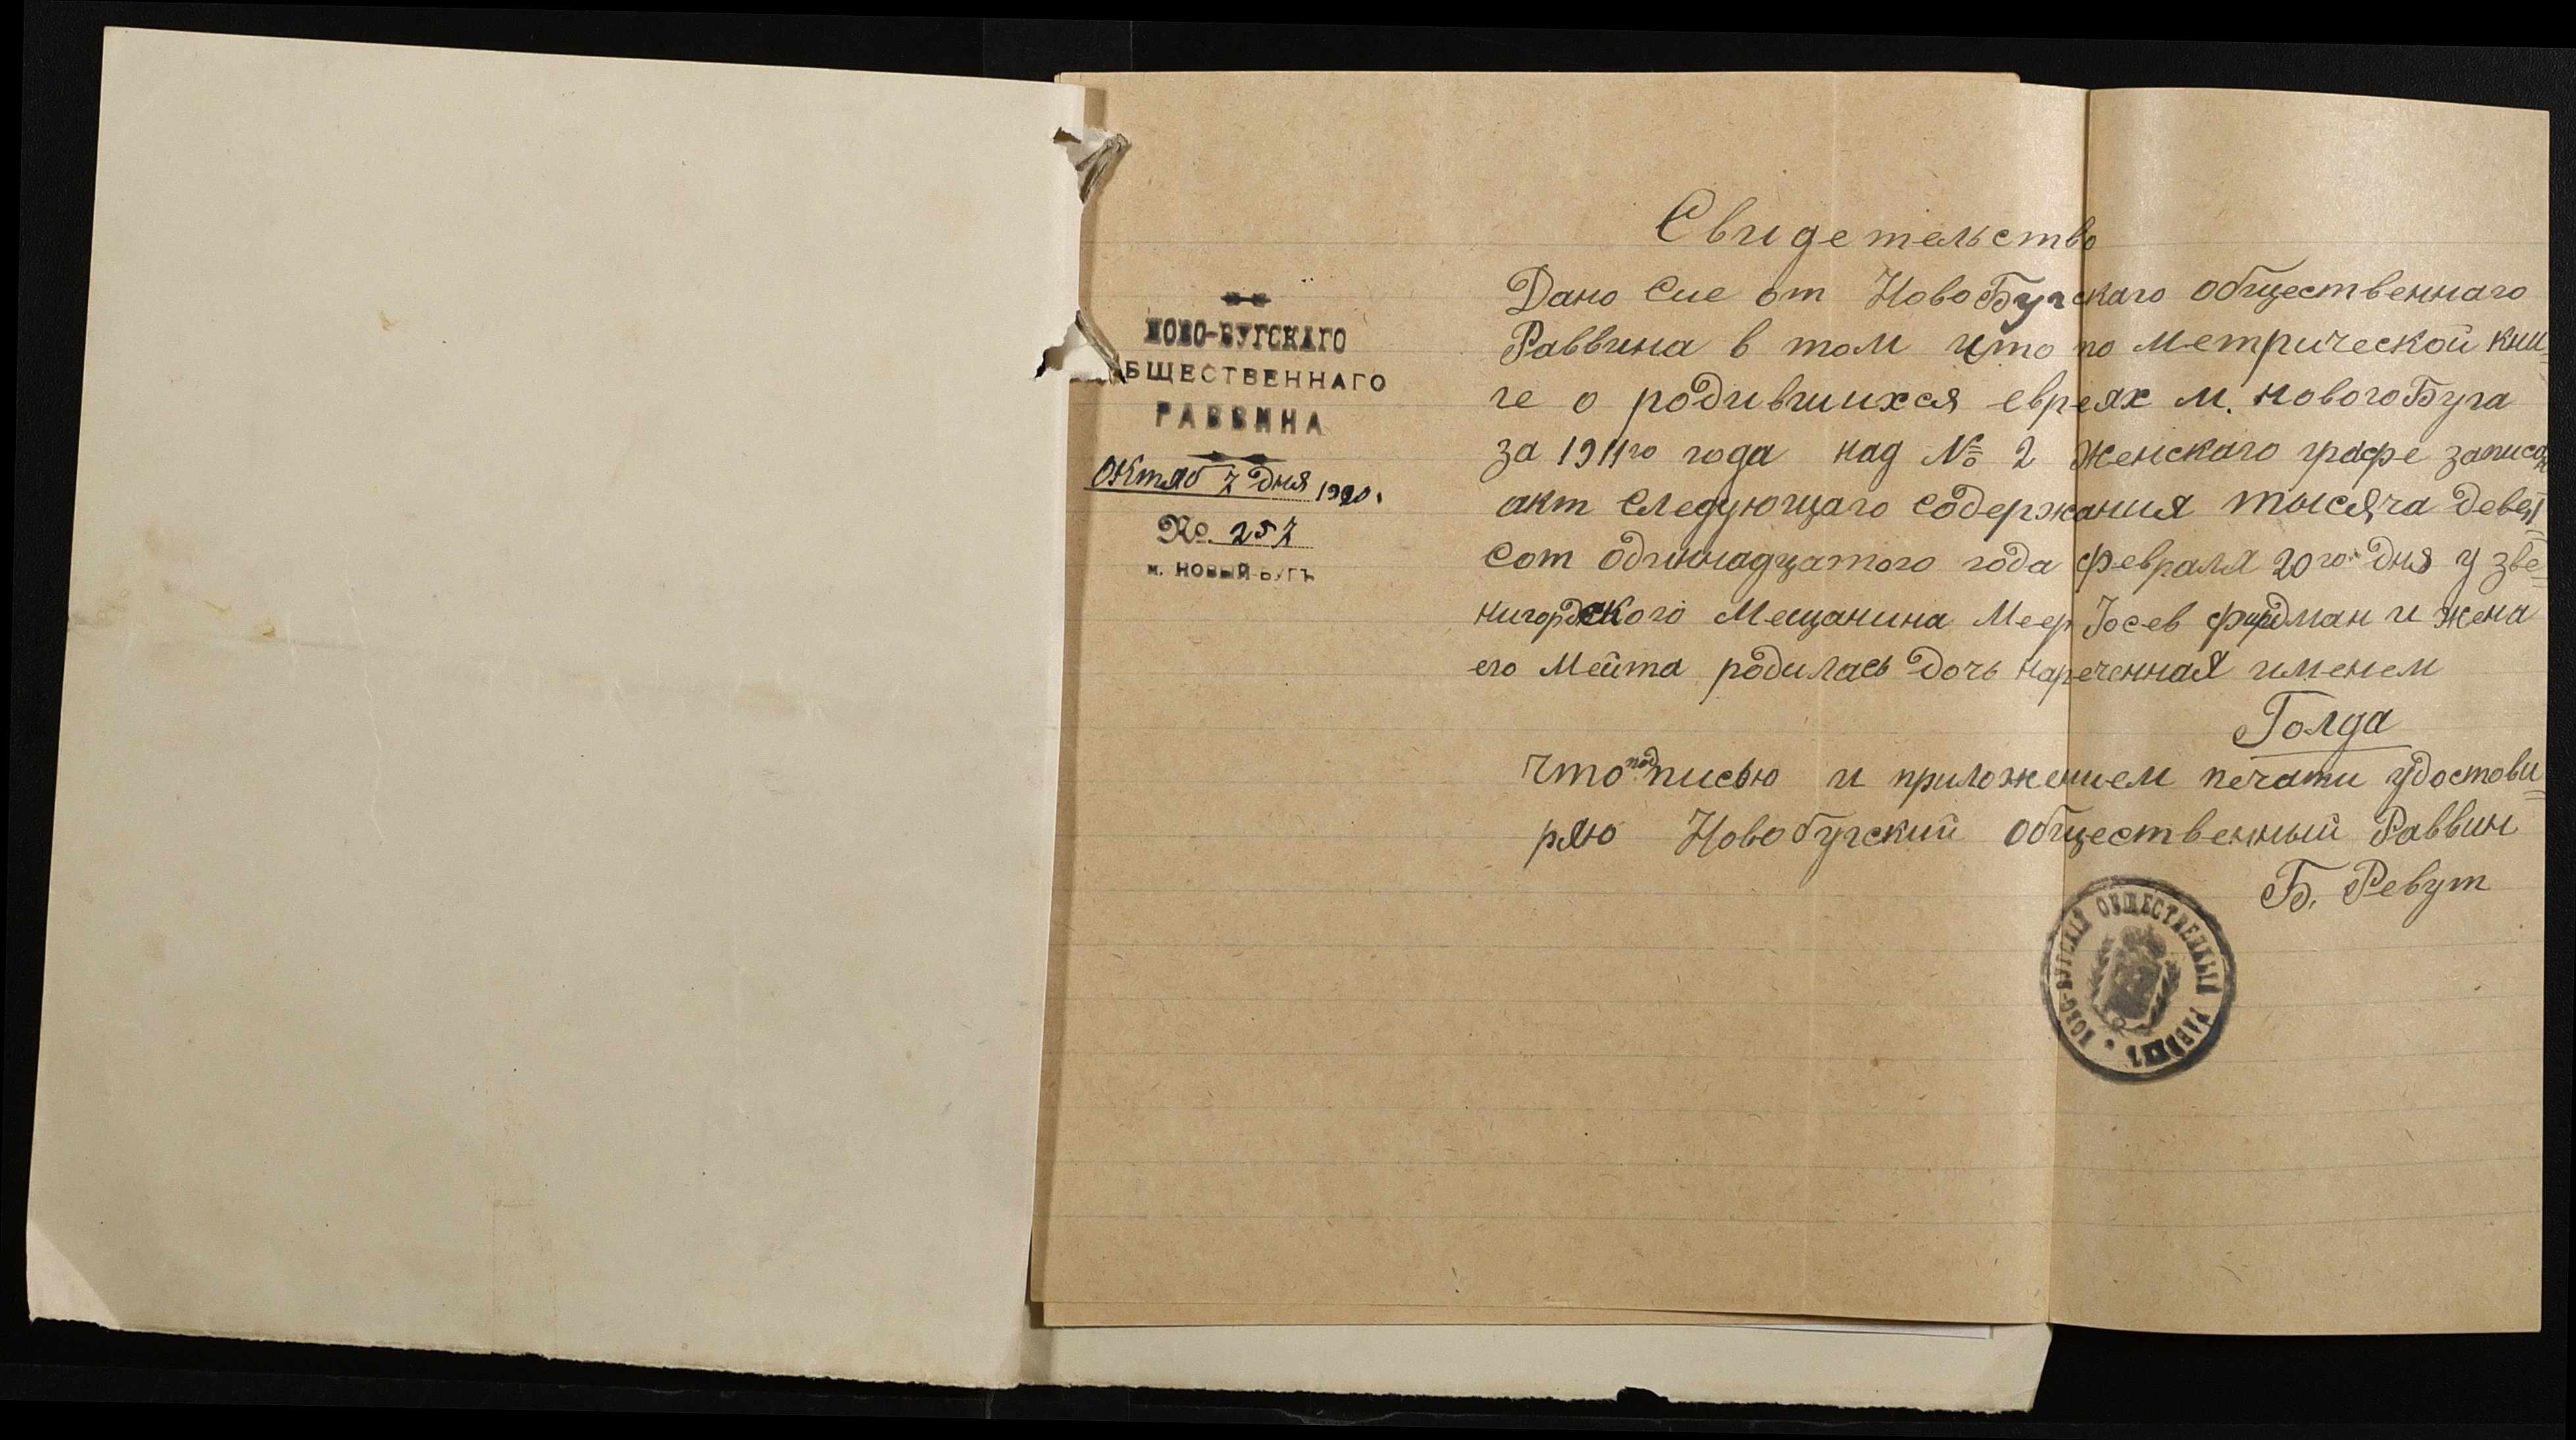 НОВО-БУГСКАГО
БЩЕСТВЕННАГО
РАВВИНА
Октяб 7 дня 1920.
№. 257
м. НОВЫЙ-БУГЪ
Свидетельство
Дано Сие от Ново Бугскаго общественнаго
Раввина в том что по метрической кни=
ге о родившихся евреях м. Нового Буга
за 1911го года над № 2 Женскаго графе записан
акт Следующаго Содержания тысяча девят
Сот одиннадцатого года февраля 20го дня у Зве=
нигородского Мещанина Меер Iосев и жена
его Мейта родилась дочь нареченная именем
Голда
Что подписью и приложением печати удостови=
ряю Новобугский общественный Раввин
Б. Ревут
НОВО-БУГСКIЙ ОБЩЕСТВЕННЫЙ РАВВИНЪ